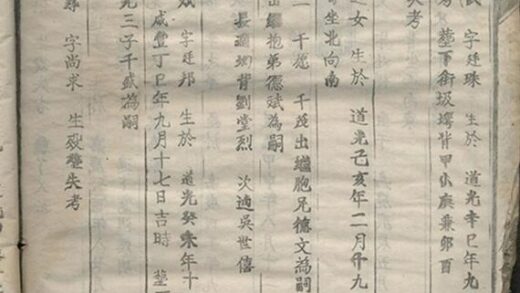 字廷珠 生於 道光辛巳年九
葬下街圾塆背甲山庚兼卯酉
失考
之女 生於 道光己亥年二月廿九
坐北向南
千茂出繼胞兄德文為嗣
出繼抱弟德斌為嗣
長適坳背劉堂烈 次適吳世僖
字廷邦 生於 道光癸未年十
咸豐丁巳年九月十七日吉時 葬
光三子千盛為嗣
字尚求 生歿葬失考